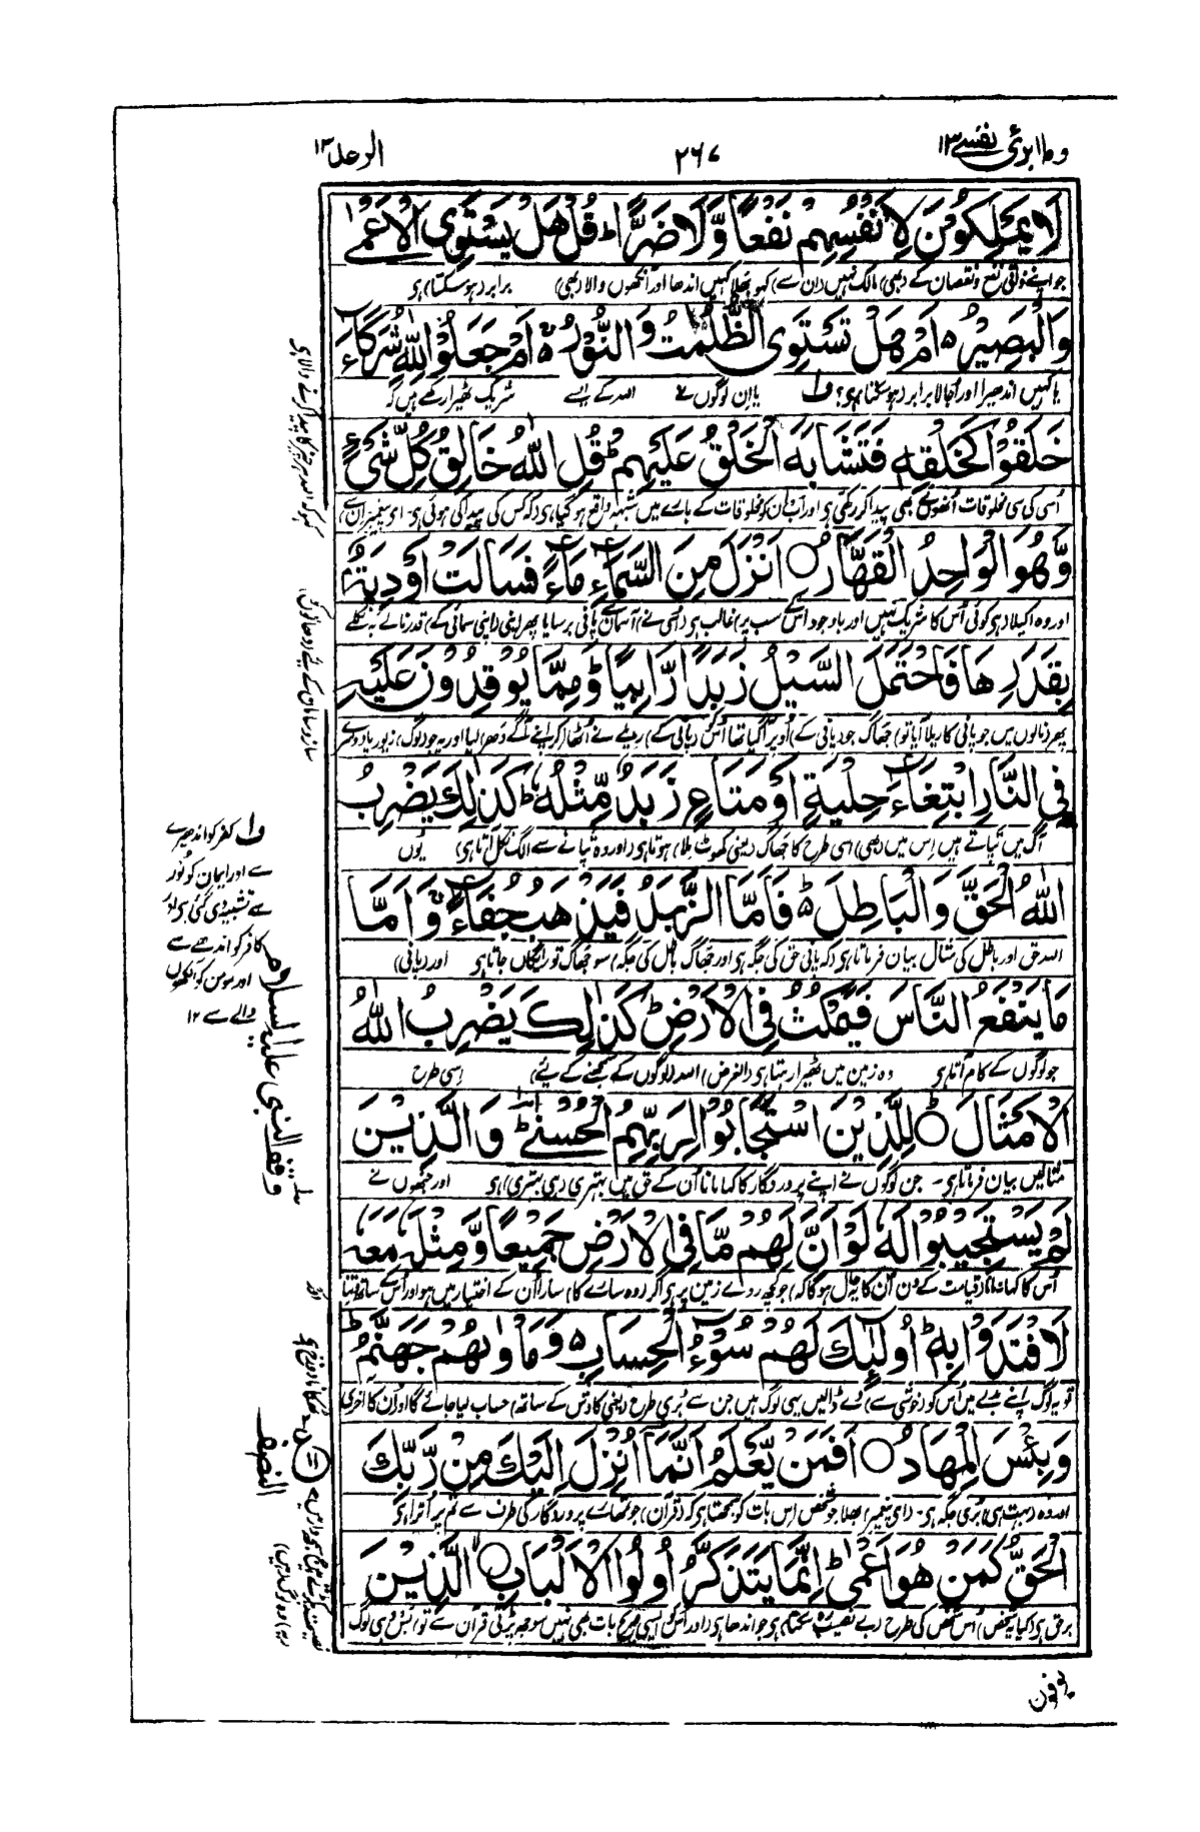 وما ابرئ نفسے ١٣
٢٦٧
الرعد ١٣
لَا يَمْلِكُوْنَ لِاَنْفُسِهِمْ نَفْعًا وَّلَا ضَرًّا ؕ قُلْ هَلْ يَسْتَوِى الْاَعْمٰى
جو اپنے ذاتی نفع و نقصان کے (بھی) مالک نہیں (ان سے) کہو بھلا کہیں اندھا اور آنکھوں والا (بھی) برابر ہو سکتا ہی
وَالْبَصِيْرُ ۙ اَمْ هَلْ تَسْتَوِى الظُّلُمٰتُ وَالنُّوْرُ ۚ اَمْ جَعَلُوْا لِلّٰهِ شُرَكَآءَ
یا کہیں اندھیرا اور اُجالا برابر ہو سکتا ہی؟ ف۱ یا اِن لوگوں نے اللہ کے ایسے شریک ٹھیرا رکھے ہیں کہ
خَلَقُوْا كَخَلْقِهٖ فَتَشَابَهَ الْخَلْقُ عَلَيْهِمْ ؕ قُلِ اللّٰهُ خَالِقُ كُلِّ شَىْءٍ
اُسی کی سی مخلوقات اُنھوں نے بھی پیدا کر رکھی ہی اور اب اِن کو مخلوقات کے بارے میں شبہہ واقع ہو گیا ہی (کہ کس کی پیدا کی ہوئی ہی۔ ای پیغمبر اِن سے)
وَّهُوَ الْوَاحِدُ الْقَهَّارُ ○ اَنْزَلَ مِنَ السَّمَآءِ مَآءً فَسَالَتْ اَوْدِيَةٌۢ
اور وہ اکیلا ہی کوئی اُس کا شریک نہیں اور باوجود اس کے سب پر غالب ہی (اُسی نے) آسمان سے پانی برسایا پھر اپنی (اپنی سمائی کے) قدر نالے بہ نکلے
بِقَدَرِهَا فَاحْتَمَلَ السَّيْلُ زَبَدًا رَّابِيًا ؕ وَمِمَّا يُوْقِدُوْنَ عَلَيْهِ
پھر (نالوں میں جو پانی کا ریلا آیا تو) جھاگ جو (پانی کے) اُوپر آ گیا تھا اُس کو (پانی کے) ریلے نے اُٹھا کر اپنے آگے دھر لیا اور یہ جو (لوگ)
فِى النَّارِ ابْتِغَآءَ حِلْيَةٍ اَوْ مَتَاعٍ زَبَدٌ مِّثْلُهٗ ؕ كَذٰلِكَ يَضْرِبُ
آگ میں تپاتے ہیں اِس میں (بھی) اسی طرح کا جھاگ (یعنی کھوٹ مِلا) ہوتا ہی (اور وہ تپانے سے الگ نکل آتا ہی) یُوں
اللّٰهُ الْحَقَّ وَالْبَاطِلَ ؕ فَاَمَّا الزَّبَدُ فَيَذْهَبُ جُفَآءً ۚ وَاَمَّا
اللہ حق اور باطل کی مثال بیان فرماتا ہی (کہ پانی حق کی جگہ ہی اور جھاگ باطل کی جگہ) سو جھاگ تو رایگاں جاتا ہی اور (پانی)
مَا يَنْفَعُ النَّاسَ فَيَمْكُثُ فِى الْاَرْضِ ؕ كَذٰلِكَ يَضْرِبُ اللّٰهُ
جو لوگوں کے کام آتا ہی وہ زمین میں ٹھیرا رہتا ہی (الغرض) اللہ (لوگوں کے سمجھنے کے لیے) اِسی طرح
الْاَمْثَالَ ○ لِلَّذِيْنَ اسْتَجَابُوْا لِرَبِّهِمُ الْحُسْنٰى ؕ وَالَّذِيْنَ
مثالیں بیان فرماتا ہی۔ جن لوگوں نے اپنے پروردگار کا کہا مانا اُن کے حق میں بہتری (ہی بہتری) ہی اور جنھوں نے
لَمْ يَسْتَجِيْبُوْا لَهٗ لَوْ اَنَّ لَهُمْ مَّا فِى الْاَرْضِ جَمِيْعًا وَّمِثْلَهٗ مَعَهٗ
اُس کا کہا نہ مانا (قیامت کے دن اُن کا یہ حال ہو گا کہ) جو کچھ روے زمین پر ہی اگر (وہ سارے کا) سارا اُن کے اختیار میں ہو اور اُس کے ساتھ اُتنا
لَافْتَدَوْا بِهٖ ؕ اُولٰٓئِكَ لَهُمْ سُوْٓءُ الْحِسَابِ ۙ وَمَاْوٰىهُمْ جَهَنَّمُ ؕ
تو یہ لوگ اپنے بدلے میں اُس کو (خوشی سے) دے ڈالیں یہی لوگ ہیں جن سے بُری طرح (یعنی کاوش کے ساتھ) حساب لیا جائے گا اور اُن کا آخری
وَبِئْسَ الْمِهَادُ ○ اَفَمَنْ يَّعْلَمُ اَنَّمَآ اُنْزِلَ اِلَيْكَ مِنْ رَّبِّكَ
اور وہ (بہت ہی) بُری جگہ ہی۔ (ای پیغمبر) بھلا جو شخص اِس بات کو سمجھتا ہی کہ (قرآن) جو تمھارے پروردگار کی طرف سے تم پر اُترا ہی
الْحَقُّ كَمَنْ هُوَ اَعْمٰى ؕ اِنَّمَا يَتَذَكَّرُ اُولُوا الْاَلْبَابِ ○ الَّذِيْنَ
برحق ہی (کیا یہ شخص) اُس شخص کی طرح
کہو کہ اللہ ہر چیز کا پیدا کرنے والا ہی
ف۱ کفر کو اندھیرے
سے اور ایمان کو نُور
سے تشبیہ دی گئی ہی اور
کافر کو اندھے سے
اور مومن کو آنکھوں
والے سے ۱۲
وقف النبی علیہ السلام
النصف
یوفون